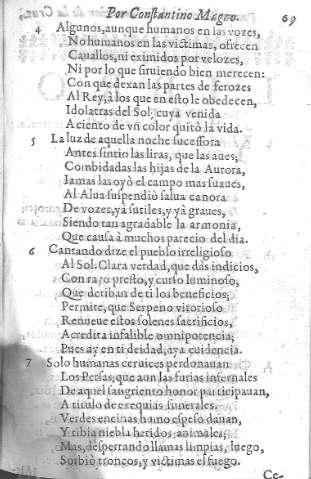 Por Constantino Magno. 69
4 Algunos, aunque humanos en las vozes,
No humanos en las victimas, ofrecen
Cauallos, ni eximidos por velozes,
Ni por lo que siruiendo bien merecen:
Con que dexan las partes de ferozes
Al Rey, à los que en esto le obedecen,
Idolatras del Sol; cuya venida
A ciento de vñ color quitò la vida.
5 La luz de aquella noche sucessora
Antes sintio las liras, que las aues;
Combidadas las hijas de la Aurora,
Iamas las oyò el campo mas suaues,
Al Alua suspendiò salua canora
De vozes, yà sutiles, y yà graues,
Siendo tan agradable la armonia,
Que causa à muchos parecio del dia.
6 Cantando dize el pueblo irreligioso
Al Sol. Clara verdad, que das indicios,
Con rayo presto, y curso luminoso,
Que deriban de ti los beneficios;
Permite, que Serpeno vitorioso
Renueue estos solenes sacrificios,
Acredita infalible omnipotencia;
Pues ay en ti deidad, aya euidencia.
7 Solo humanas ceruices perdonauan
Los Persas, que aun las furias infernales
De aquel sangriento honor participauan,
A titulo de exequias funerales.
Verdes encinas humo espeso dauan,
Y tibia niebla heridos animales;
Mas, despertando llamas limpias, luego,
Sorbiò troncos, y victimas el fuego.
Ce-